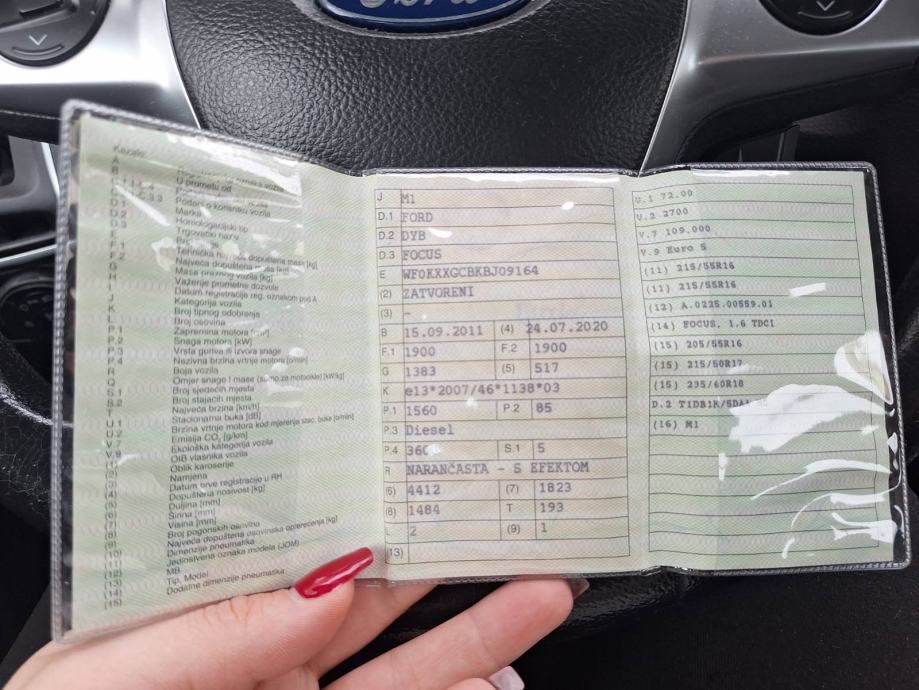 Ford
A
B
D.1
D.2
D.3
E
F.1
F.2
G
H
I
J
K
L
P.1
P.2
P.3
P.4
R
Q
S.1
S.2
T
U.1
U.2
V.7
V.9
(2)
(3)
(4)
(5)
(6)
(7)
(8)
(9)
(10)
(11)
(12)
(13)
(14)
(15)
U prometu od
Podaci o korisniku vozila
Marka
Homologacijski tip
Trgovački naziv
Najveća dopuštena masa [kg]
Masa praznog vozila [kg]
Važenje prometne dozvole
Datum registracije reg. oznakom pod A
Kategorija vozila
Broj tipnog odobrenja
Broj osovina
Zapremina motora [cm³]
Snaga motora [kW]
Vrsta goriva ili izvora snage
Nazivna brzina vrtnje motora [o/min]
Boja vozila
Omjer snage i mase (samo za motocikle) [kW/kg]
Broj sjedećih mjesta
Broj stajaćih mjesta
Najveća brzina [km/h]
Stacionarna buka [dB]
Brzina vrtnje motora kod mjerenja stac. buke [o/min]
Emisija CO₂ [g/km]
Ekološka kategorija vozila
OIB vlasnika vozila
Oblik karoserije
Namjena
Datum prve registracije u RH
Dopuštena nosivost [kg]
Duljina [mm]
Širina [mm]
Visina [mm]
Broj pogonskih osovina
Najveća dopuštena osovinska opterećenja [kg]
Dimenzije pneumatika
Jedinstvena oznaka modela (JOM)
MB
Tip, Model
Dodatne dimenzije pneumatika
J M1
D.1 FORD
D.2 DYB
D.3 FOCUS
E WF0KXXGCBKBJ09164
(2) ZATVORENI
(3) -
B 15.09.2011 (4) 24.07.2020
F.1 1900 F.2 1900
G 1383 (5) 517
K e13*2007/46*1138*03
P.1 1560 P.2 85
P.3 Diesel
P.4 3600 S.1 5
R NARANČASTA - S EFEKTOM
(6) 4412 (7) 1823
(8) 1484 T 193
L 2 (9) 1
(13)
U.1 72.00
U.2 2700
V.7 109.000
V.9 Euro 5
(11) 215/55R16
(11) 215/55R16
(12) A.0225.00559.01
(14) FOCUS, 1.6 TDCI
(15) 205/55R16
(15) 215/50R17
(15) 235/40R18
D.2
(16) M1